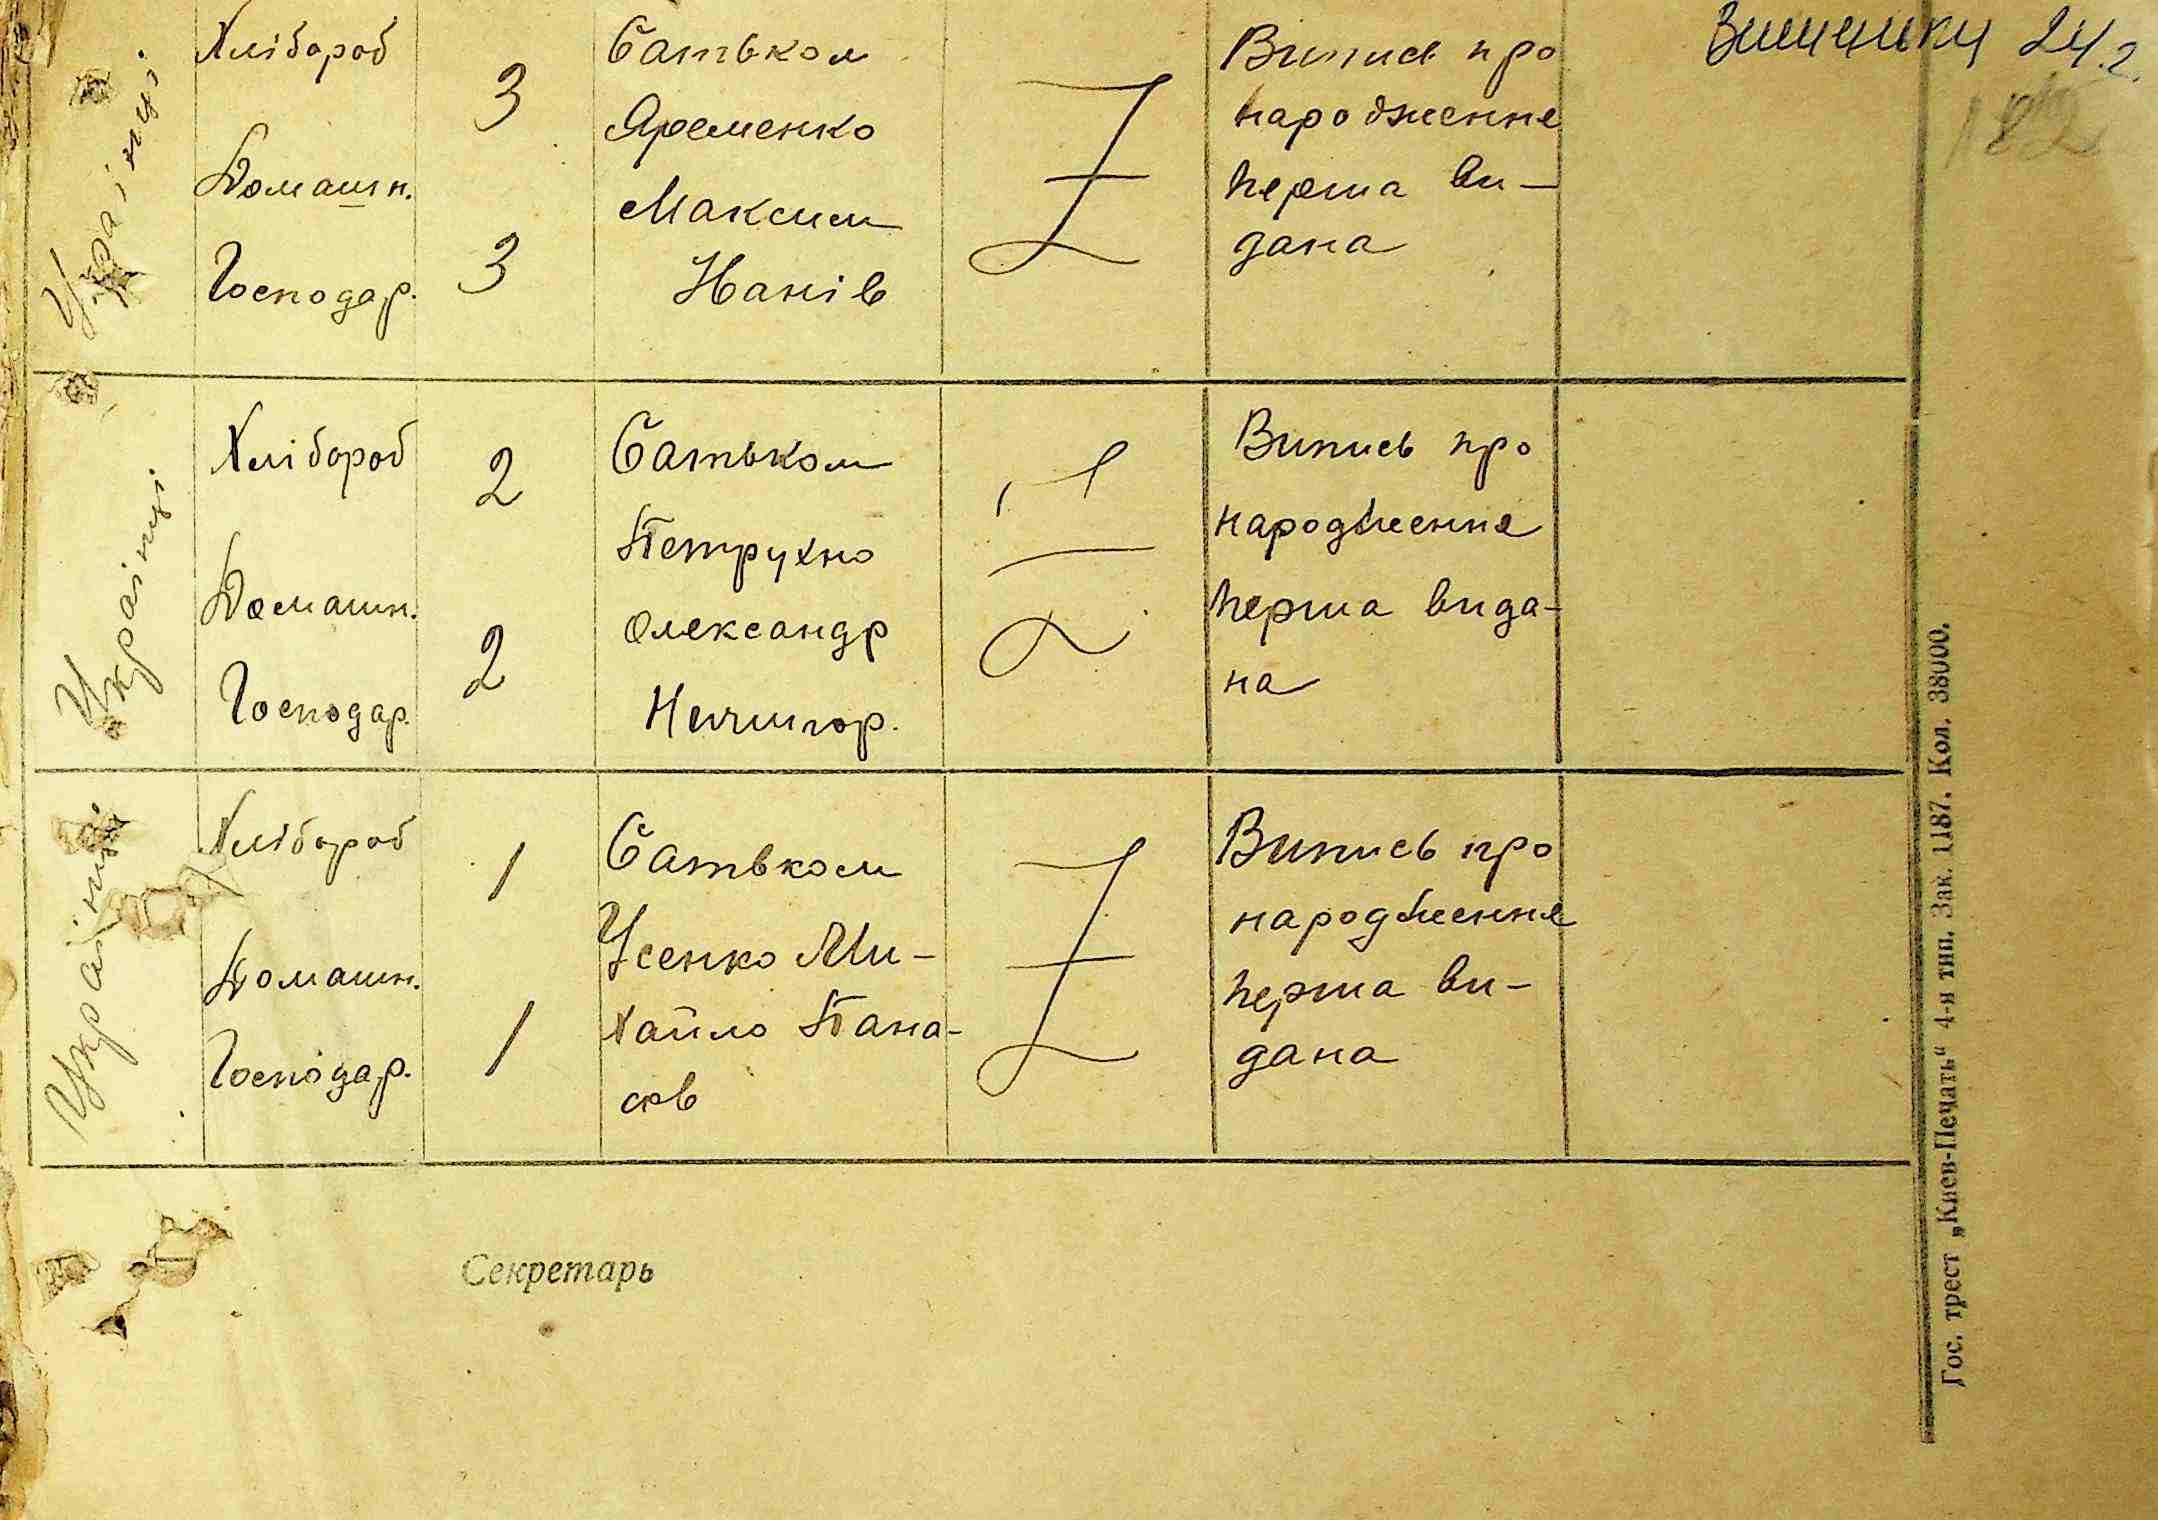 Вишеньки 24 г.
182
Українці
Хлібороб
Домашн.
Господар.
3
3
батьком
Яременко
Максим
Нанів
Випись про
народження
перша ви-
дана
Українці
Хлібороб
Домашн.
Господар.
2
2
батьком
Петрухно
Олександр
Ничипор.
Випись про
народження
перша вида-
на
Українці
Хлібороб
Домашн.
Господар.
1
1
батьком
Усенко Ми-
хайло Пана-
сів
Випись про
народження
перша ви-
дана
Секретарь
Гос. трест „Киев-Печать“ 4-я тип. Зак. 1187. Кол. 38000.